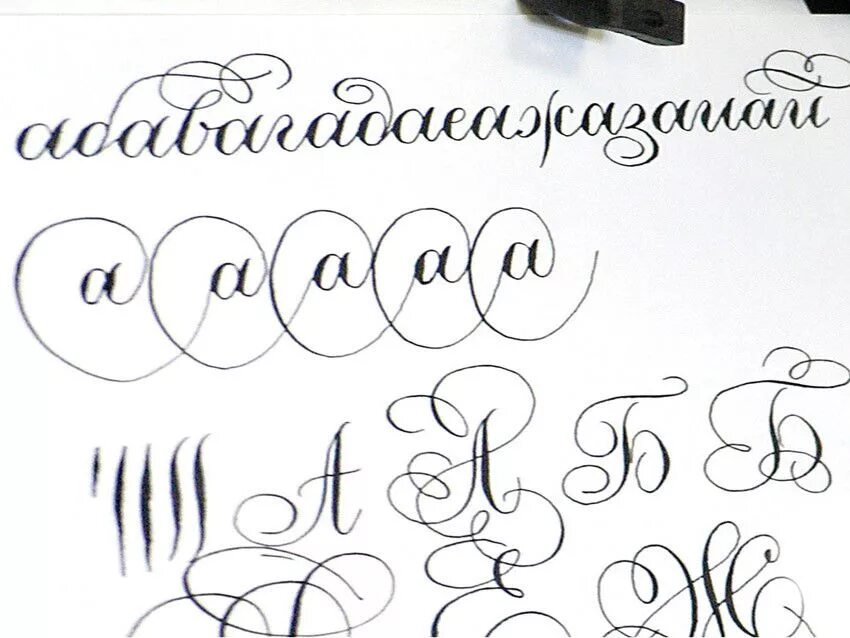 абавагадаеажазаиай
а а а а а
А А Б Б
Е Ж